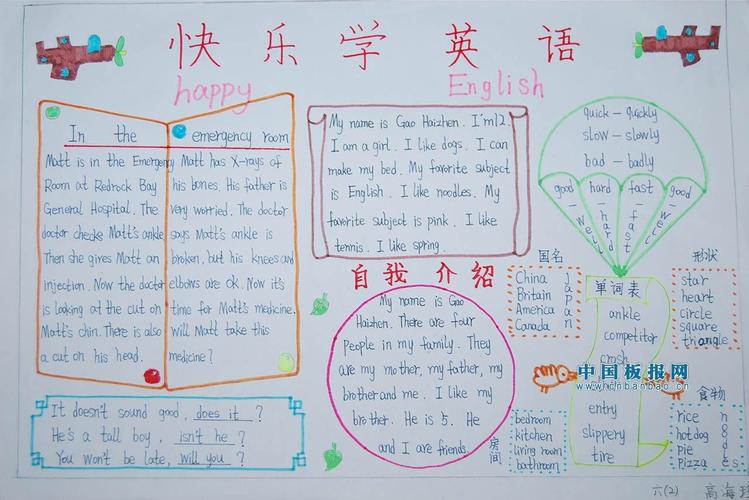 快乐学英语
happy English
In the emergency room
Matt is in the Emergency
Room at Redrock Bay
General Hospital. The
doctor checks Matt's ankle.
Then she gives Matt an
injection. Now the doctor
is looking at the cut on
Matt's chin. There is also
a cut on his head.
Matt has X-rays of
his bones. His father is
very worried. The doctor
says Matt's ankle is
broken, but his knees and
elbows are OK. Now it's
time for Matt's medicine.
Will Matt take this
medicine?
It doesn't sound good, does it ?
He's a tall boy, isn't he ?
You won't be late, will you ?
My name is Gao Haizhen. I'm12.
I am a girl. I like dogs. I can
make my bed. My favorite subject
is English. I like noodles. My
favorite subject is pink. I like
tennis. I like spring.
自我介绍
My name is Gao
Haizhen. There are four
People in my family. They
are my mother, my father, my
brother and me. I like my
brother. He is 5. He
and I are friends.
quick - quickly
slow - slowly
bad - badly
good - well
hard - hard
fast - fast
good - well
国名
China
Britain
America
Canada
Japan
单词表
ankle
competitor
crash
entry
slippery
tire
形状
star
heart
circle
square
triangle
房间
bedroom
kitchen
living room
bathroom
食物
rice
hotdog
pie
Pizza
noodles
中国板报网
www.cnbanbao.cn
六(2) 高海